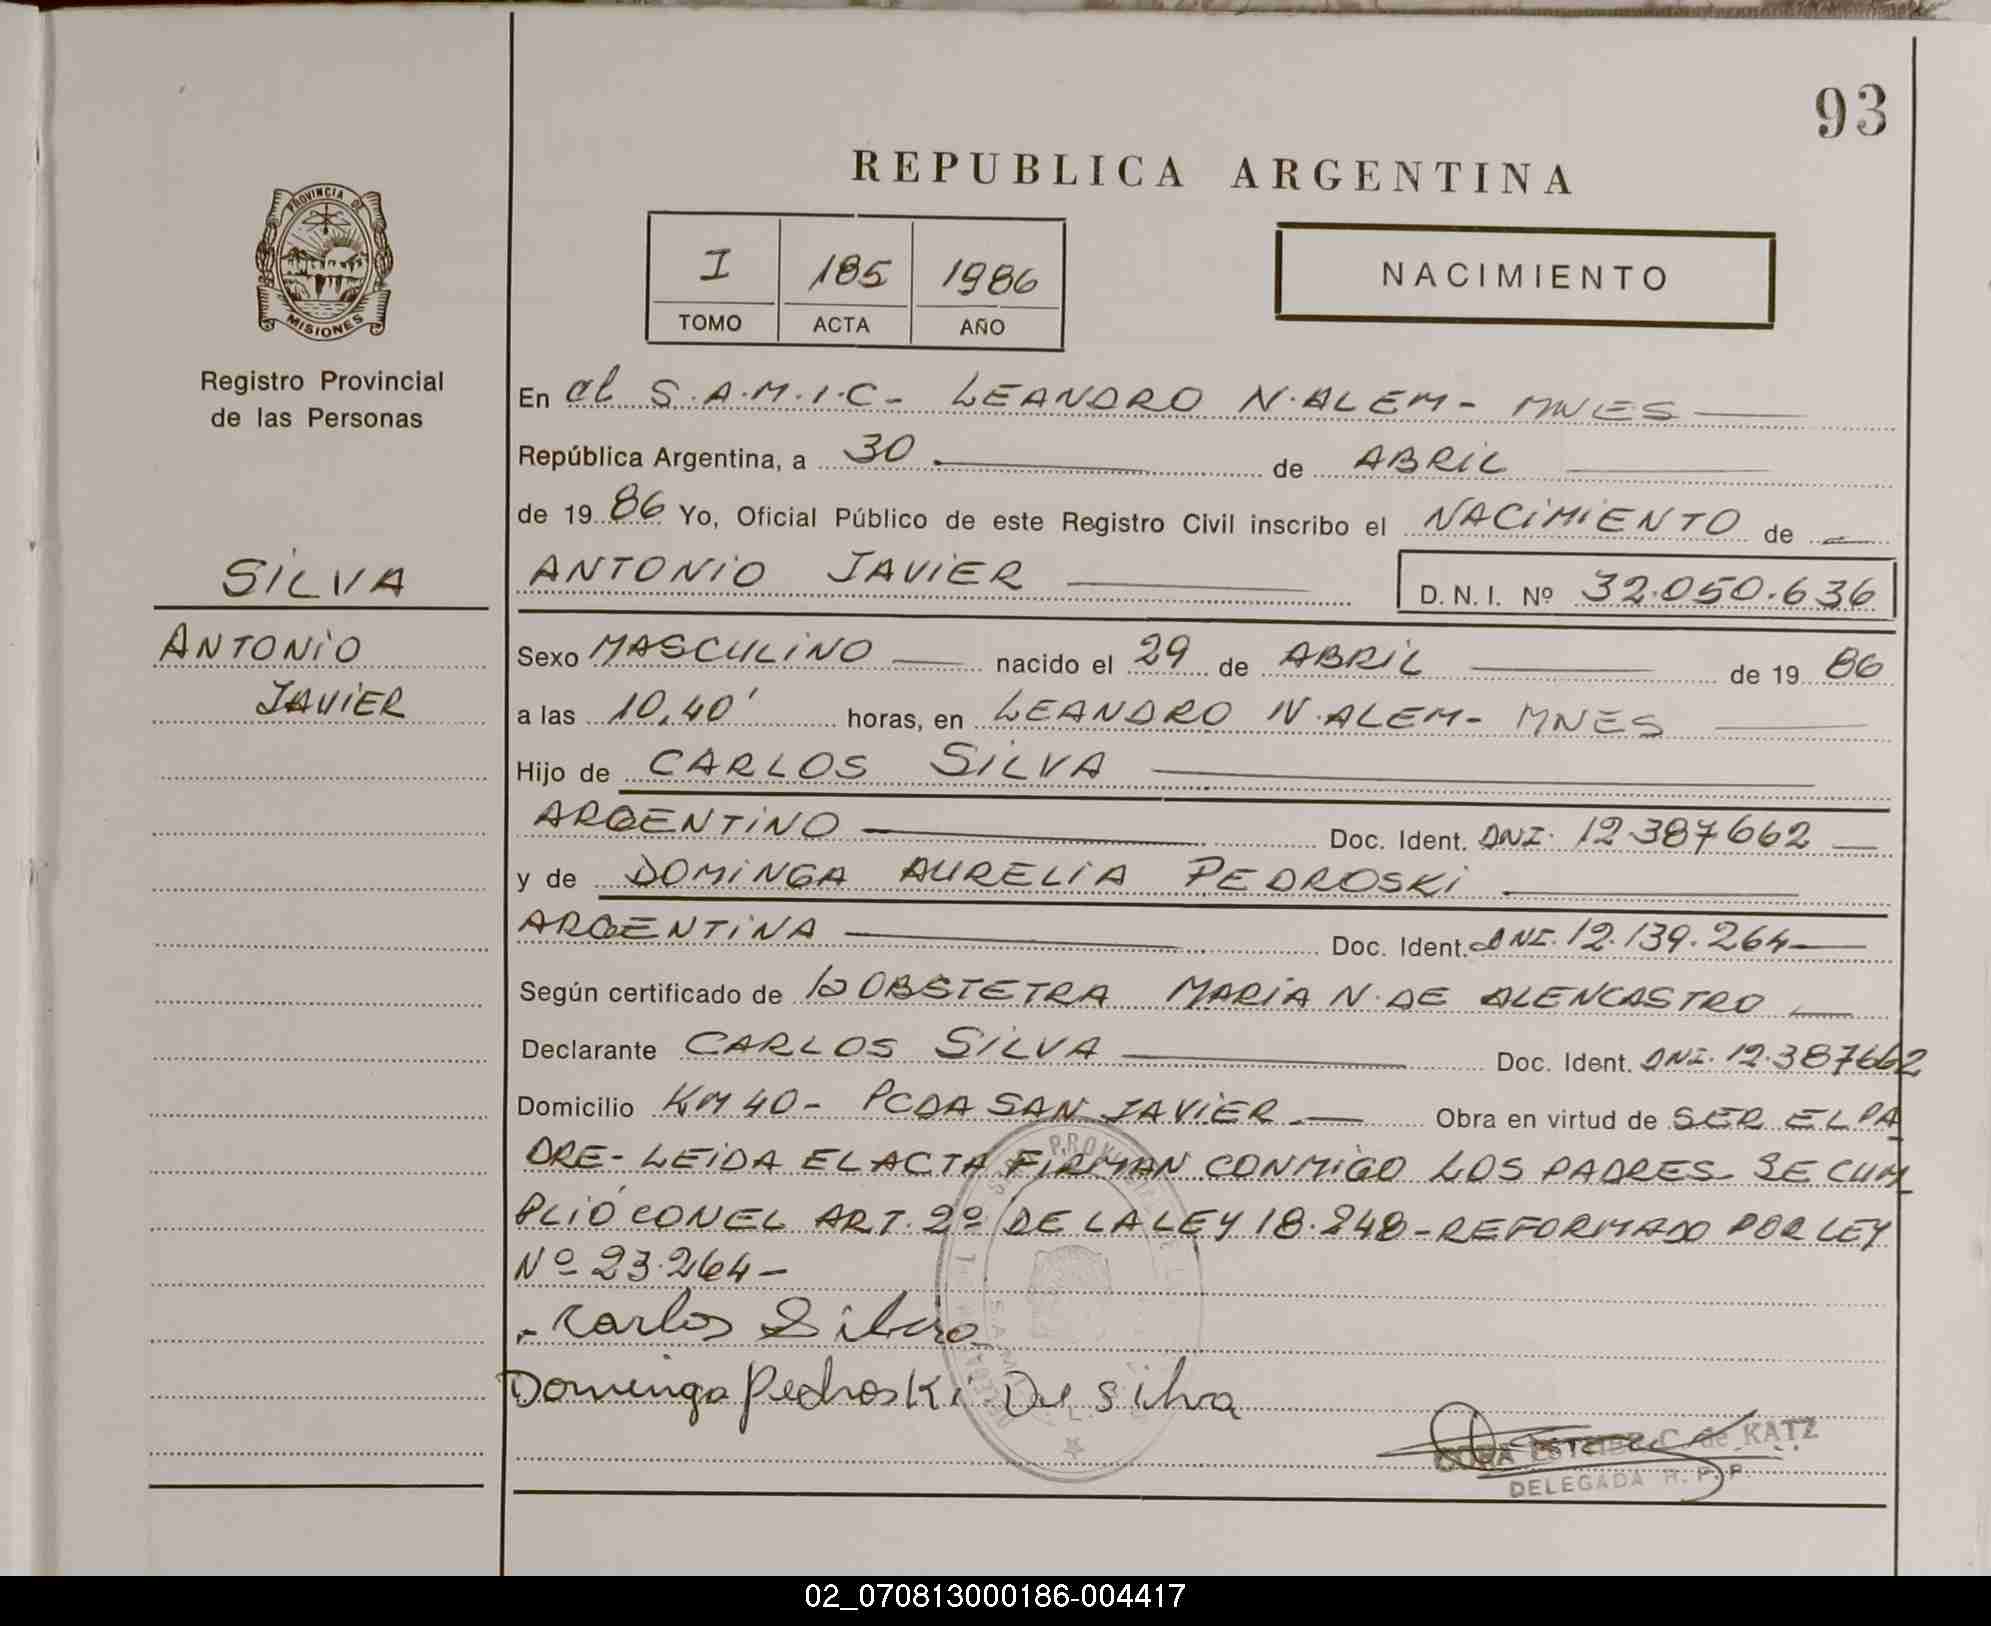 93
REPUBLICA ARGENTINA
PROVINCIA DE
MISIONES
Registro Provincial
de las Personas
I 185 1986
TOMO ACTA AÑO
NACIMIENTO
SILVA
ANTONIO
JAVIER
En el S.A.M.I.C- LEANDRO N.ALEM- MNES
República Argentina, a 30 de ABRIL
de 1986 Yo, Oficial Público de este Registro Civil inscribo el NACIMIENTO de
ANTONIO JAVIER D.N.I. Nº 32.050.636
Sexo MASCULINO nacido el 29 de ABRIL de 1986
a las 10,40' horas, en LEANDRO N.ALEM- MNES
Hijo de CARLOS SILVA
ARGENTINO Doc. Ident. DNI. 12.387662
y de DOMINGA AURELIA PEDROSKI
ARGENTINA Doc. Ident. DNI. 12.139.264
Según certificado de la OBSTETRA MARIA N. DE ALENCASTRO
Declarante CARLOS SILVA Doc. Ident. DNI. 12.387662
Domicilio KM 40- PCDA SAN JAVIER.- Obra en virtud de SER EL PA
DRE- LEIDA EL ACTA FIRMAN CONMIGO LOS PADRES- SE CUM
PLIÓ CON EL ART. 2º DE LA LEY 18.248-REFORMADO POR LEY
Nº 23.264-
Carlos Silva
Dominga Pedroski De Silva
C. de KATZ
DELEGADA R.P.P.
02_070813000186-004417